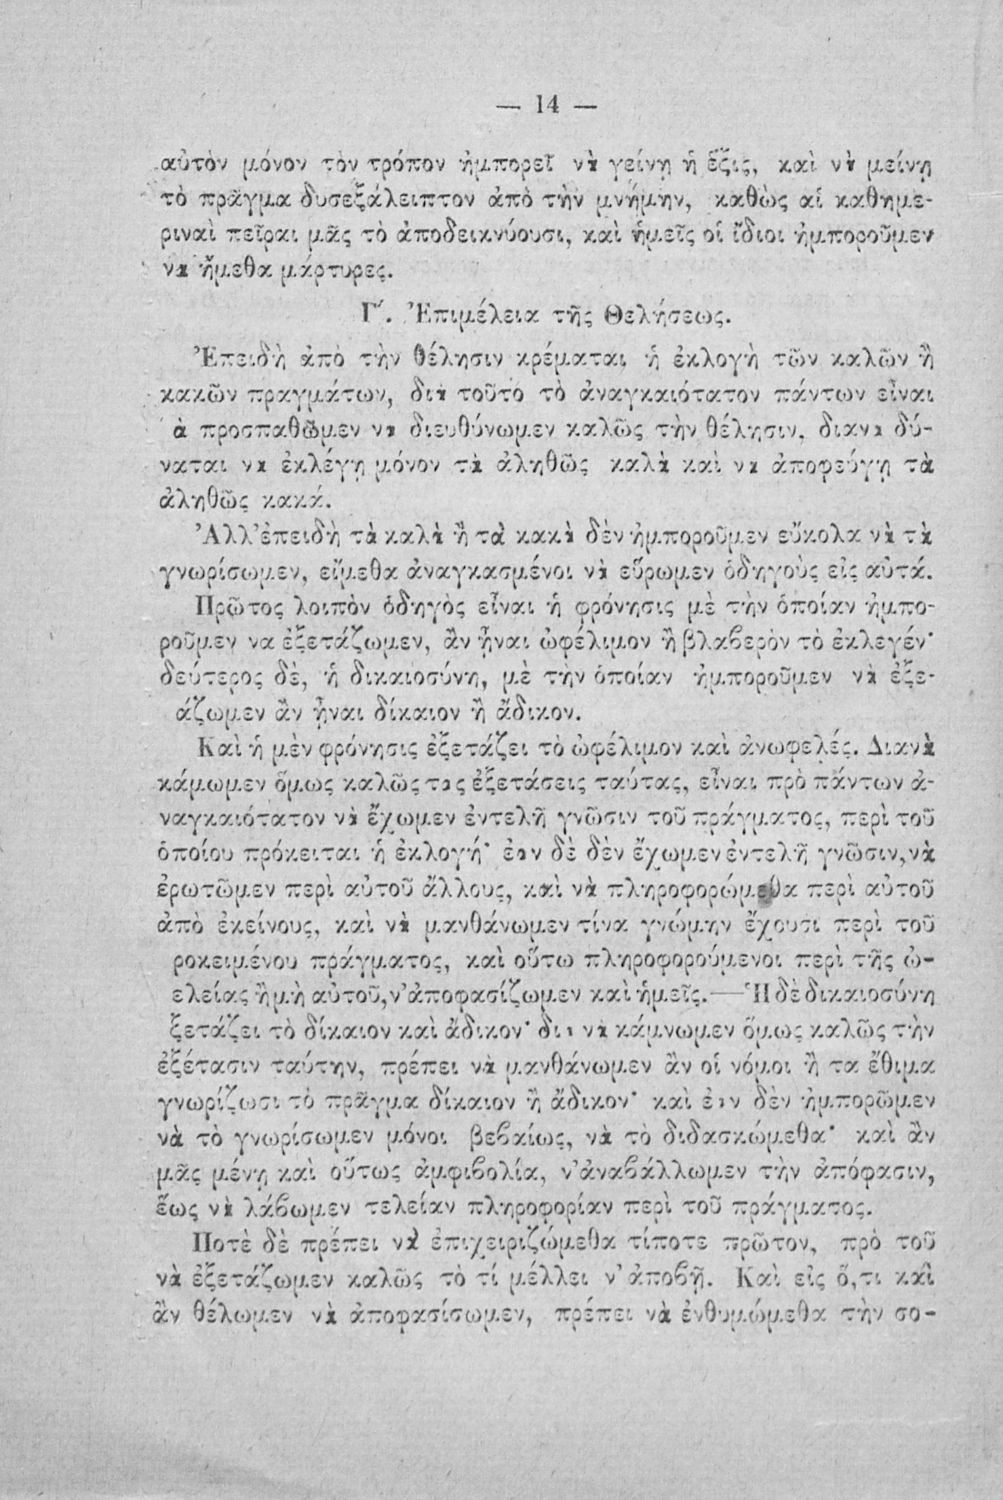 — 14 —
αὐτὸν μόνον τὸν τρόπον ἠμπορεῖ νὰ γείνῃ ἡ ἕξις, καὶ νὰ μείνῃ
τὸ πρᾶγμα δυσεξάλειπτον ἀπὸ τὴν μνήμην, καθὼς αἱ καθημε-
ριναὶ πεῖραι μᾶς τὸ ἀποδεικνύουσι, καὶ ἡμεῖς οἱ ἴδιοι ἠμποροῦμεν
νὰ ἤμεθα μάρτυρες.
Γʹ. Ἐπιμέλεια τῆς Θελήσεως.
Ἐπειδὴ ἀπὸ τὴν θέλησιν κρέμαται ἡ ἐκλογὴ τῶν καλῶν ἢ
κακῶν πραγμάτων, διὰ τοῦτο τὸ ἀναγκαιότατον πάντων εἶναι
ὰ προσπαθῶμεν νὰ διευθύνωμεν καλῶς τὴν θέλησιν, διανὰ δύ-
ναται νὰ ἐκλέγῃ μόνον τὰ ἀληθῶς καλὰ καὶ νὰ ἀποφεύγῃ τὰ
ἀληθῶς κακά.
Ἀλλ’ ἐπειδὴ τὰ καλὰ ἢ τὰ κακὰ δὲν ἠμποροῦμεν εὔκολα νὰ τὰ
γνωρίσωμεν, εἴμεθα ἀναγκασμένοι νὰ εὕρωμεν ὁδηγοὺς εἰς αὐτά.
Πρῶτος λοιπὸν ὁδηγὸς εἶναι ἡ φρόνησις μὲ τὴν ὁποίαν ἠμπο-
ροῦμεν να ἐξετάζωμεν, ἂν ἦναι ὠφέλιμον ἢ βλαβερὸν τὸ ἐκλεγέν·
δεύτερος δὲ, ἡ δικαιοσύνη, μὲ τὴν ὁποίαν ἠμποροῦμεν νὰ ἐξε-
άζωμεν ἂν ἦναι δίκαιον ἢ ἄδικον.
Καὶ ἡ μὲν φρόνησις ἐξετάζει τὸ ὠφέλιμον καὶ ἀνωφελές. Διανὰ
κάμωμεν ὅμως καλῶς τας ἐξετάσεις ταύτας, εἶναι πρὸ πάντων ἀ-
ναγκαιότατον νὰ ἔχωμεν ἐντελῆ γνῶσιν τοῦ πράγματος, περὶ τοῦ
ὁποίου πρόκειται ἡ ἐκλογή· ἐὰν δὲ δὲν ἔχωμεν ἐντελῆ γνῶσιν, νὰ
ἐρωτῶμεν περὶ αὐτοῦ ἄλλους, καὶ νὰ πληροφορώμεθα περὶ αὐτοῦ
ἀπὸ ἐκείνους, καὶ νὰ μανθάνωμεν τίνα γνώμην ἔχουσι περὶ τοῦ
ροκειμένου πράγματος, καὶ οὕτω πληροφορούμενοι περὶ τῆς ὠ-
ελείας ἢ μὴ αὐτοῦ, ν’ ἀποφασίζωμεν καὶ ἡμεῖς.—Ἡ δὲ δικαιοσύνη
ξετάζει τὸ δίκαιον καὶ ἄδικον· διὰ νὰ κάμνωμεν ὅμως καλῶς τὴν
ἐξέτασιν ταύτην, πρέπει νὰ μανθάνωμεν ἂν οἱ νόμοι ἢ τα ἔθιμα
γνωρίζωσι τὸ πρᾶγμα δίκαιον ἢ ἄδικον· καὶ ἐὰν δὲν ἠμπορῶμεν
νὰ τὸ γνωρίσωμεν μόνοι βεβαίως, νὰ τὸ διδασκώμεθα· καὶ ἂν
μᾶς μένῃ καὶ οὕτως ἀμφιβολία, ν’ ἀναβάλλωμεν τὴν ἀπόφασιν,
ἕως νὰ λάβωμεν τελείαν πληροφορίαν περὶ τοῦ πράγματος.
Ποτὲ δὲ πρέπει νὰ ἐπιχειριζώμεθα τίποτε πρῶτον, πρὸ τοῦ
νὰ ἐξετάζωμεν καλῶς τὸ τί μέλλει ν’ ἀποβῇ. Καὶ εἰς ὅ,τι καὶ
ἂν θέλωμεν νὰ ἀποφασίσωμεν, πρέπει νὰ ἐνθυμώμεθα τὴν σο-